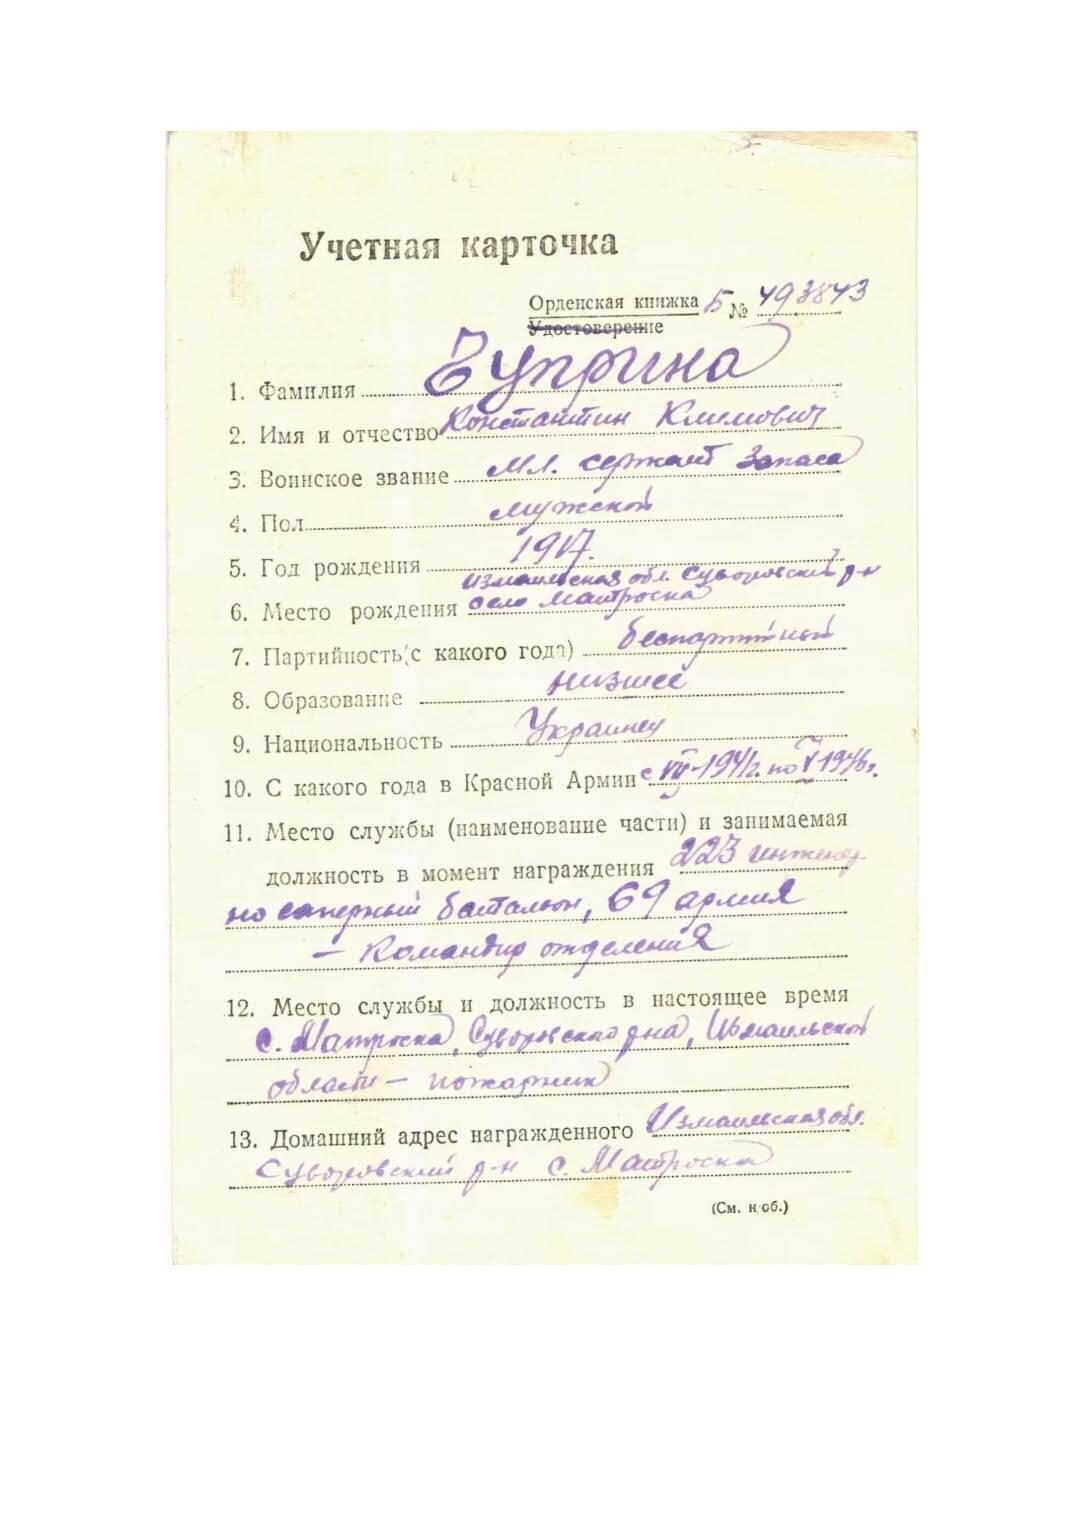 Учетная карточка
Орденская книжка Б № 493843
Удостоверение
1. Фамилия Чуприна
2. Имя и отчество Константин Климович
3. Воинское звание Мл. сержант запаса
4. Пол мужской
5. Год рождения 1917.
Измаильская обл. Суворовский р-н
6. Место рождения село Матроска
7. Партийность (с какого года) беспартийный
8. Образование низшее
9. Национальность Украинец
10. С какого года в Красной Армии с VII-1941г. по V 1946г.
11. Место службы (наименование части) и занимаемая
должность в момент награждения 223 инженер
но саперный батальон, 69 армия
– Командир отделения
12. Место службы и должность в настоящее время
с. Матроска, Суворовского р-на, Измаильской
области – пожарник
13. Домашний адрес награжденного Измаильская обл.
Суворовский р-н с. Матроска
(См. н об.)